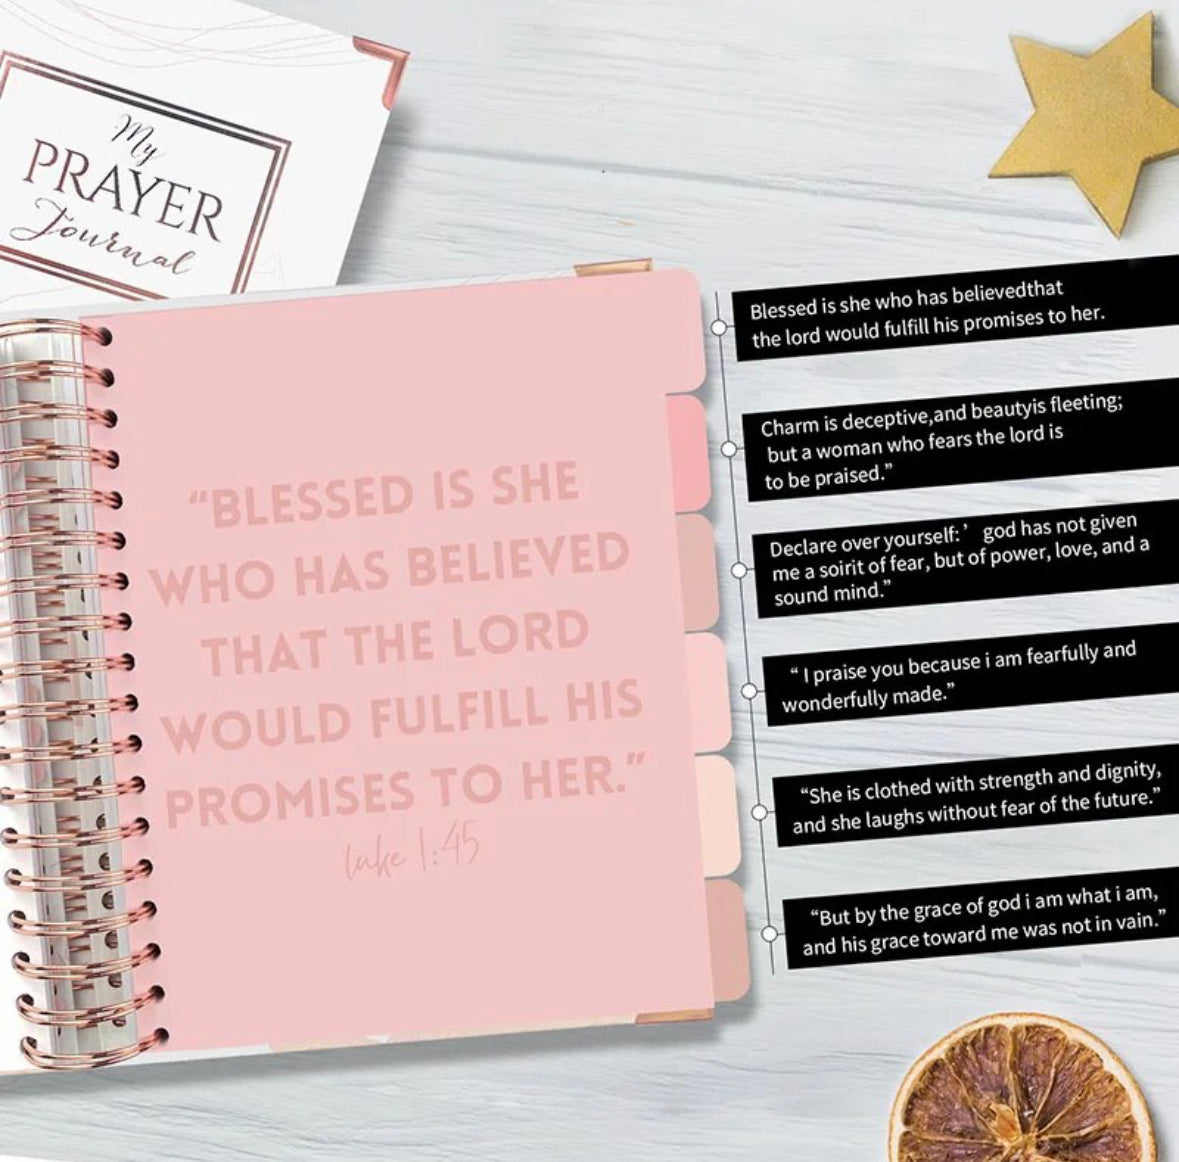 My
PRAYER
Journal
“BLESSED IS SHE
WHO HAS BELIEVED
THAT THE LORD
WOULD FULFILL HIS
PROMISES TO HER.”
luke 1:45
Blessed is she who has believedthat
the lord would fulfill his promises to her.
Charm is deceptive,and beautyis fleeting;
but a woman who fears the lord is
to be praised.”
Declare over yourself:’ god has not given
me a soirit of fear, but of power, love, and a
sound mind.”
“ I praise you because i am fearfully and
wonderfully made.”
“She is clothed with strength and dignity,
and she laughs without fear of the future.”
“But by the grace of god i am what i am,
and his grace toward me was not in vain.”